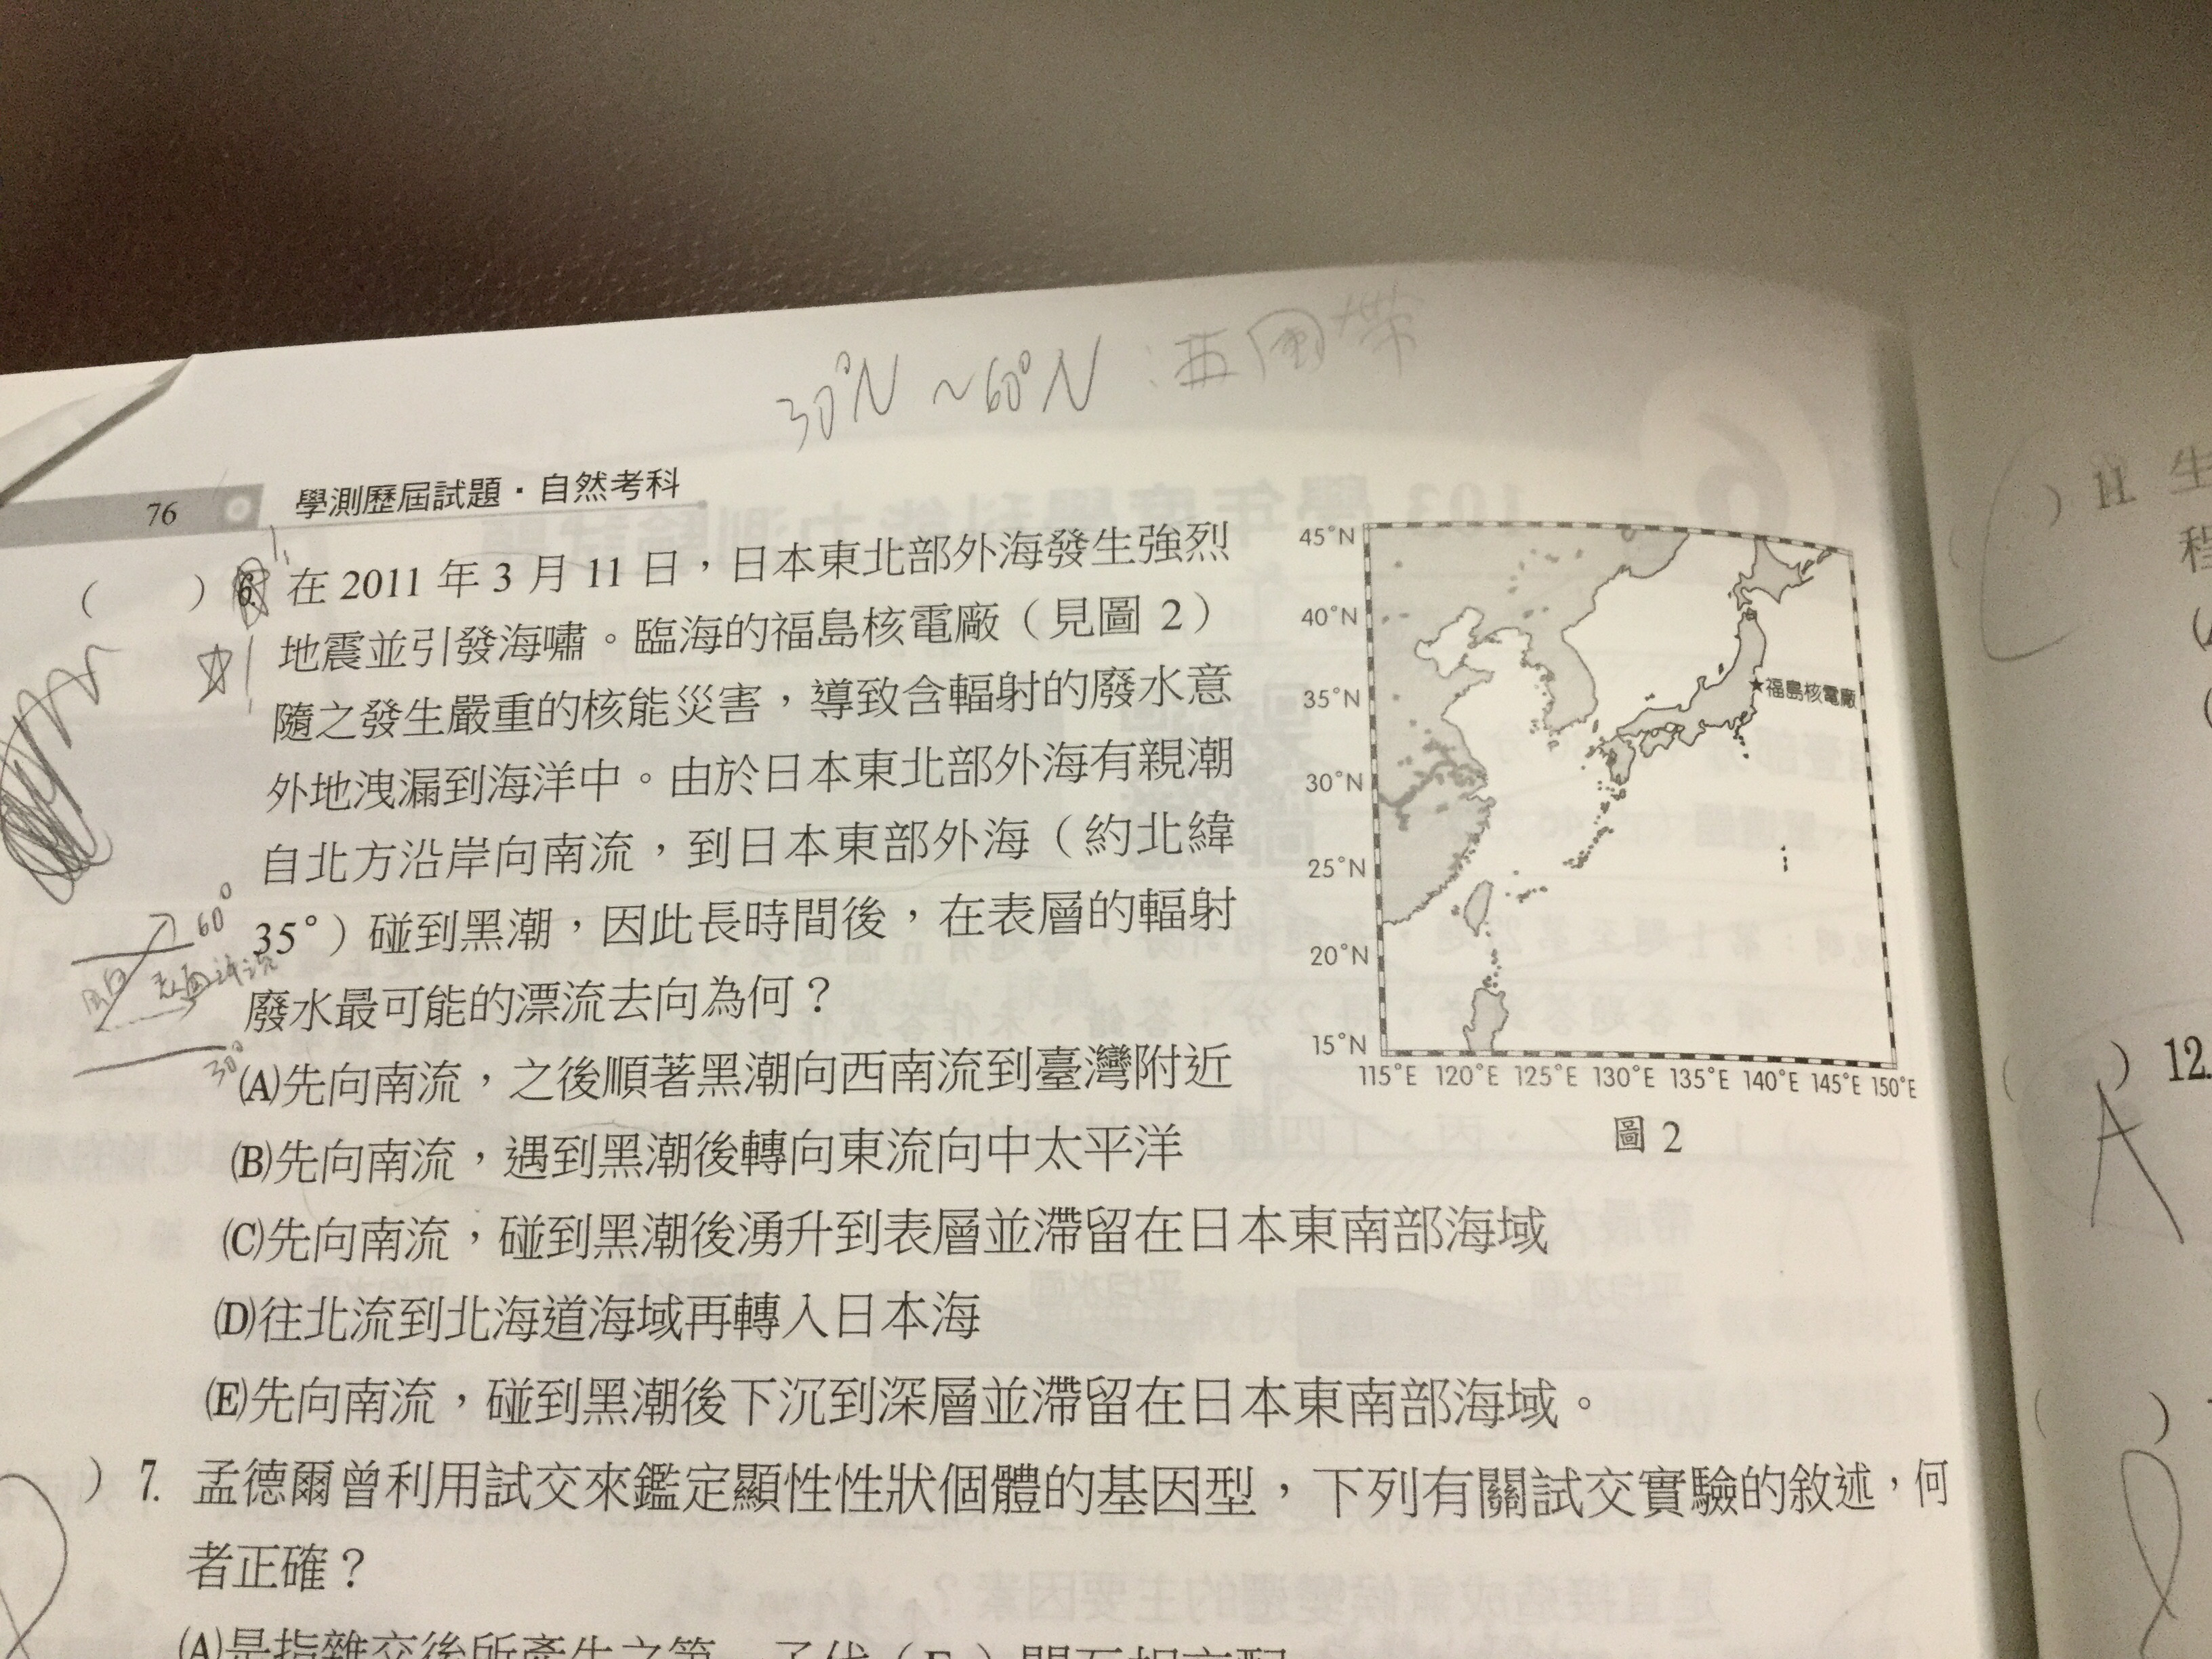 30°N ~ 60°N : 西風帶
76
學測歷屆試題・自然考科
( ) 6. 在 2011 年 3 月 11 日，日本東北部外海發生強烈
地震並引發海嘯。臨海的福島核電廠（見圖 2）
隨之發生嚴重的核能災害，導致含輻射的廢水意
外地洩漏到海洋中。由於日本東北部外海有親潮
自北方沿岸向南流，到日本東部外海（約北緯
35°）碰到黑潮，因此長時間後，在表層的輻射
廢水最可能的漂流去向為何？
60°
表面洋流
30°
(A)先向南流，之後順著黑潮向西南流到臺灣附近
(B)先向南流，遇到黑潮後轉向東流向中太平洋
(C)先向南流，碰到黑潮後湧升到表層並滯留在日本東南部海域
(D)往北流到北海道海域再轉入日本海
(E)先向南流，碰到黑潮後下沉到深層並滯留在日本東南部海域。
45°N
40°N
35°N
30°N
25°N
20°N
15°N
★福島核電廠
115°E 120°E 125°E 130°E 135°E 140°E 145°E 150°E
圖 2
) 7. 孟德爾曾利用試交來鑑定顯性性狀個體的基因型，下列有關試交實驗的敘述，何
者正確？
(A)是指雜交後所產生之第一子代（F
) 11. 生
程
) 12.
A
)